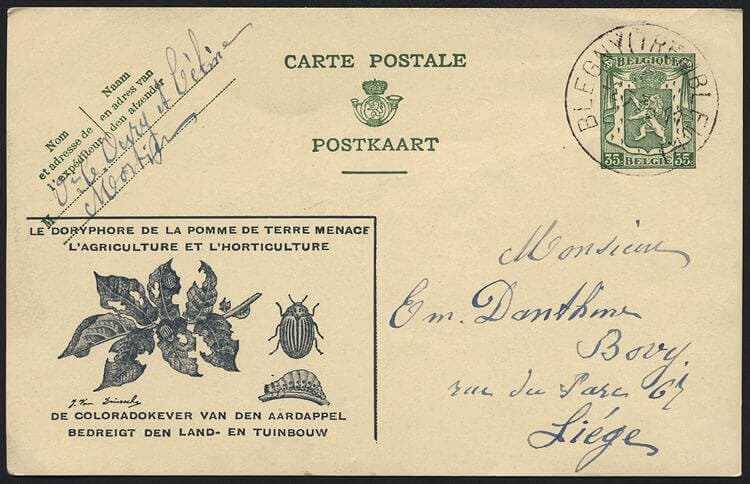 CARTE POSTALE
POSTKAART
Nom
et adresse de
l'expéditeur
Naam
en adres van
den afzender
M
BELGIQUE
35c BELGIE 35c
BLEGNY (TREMBLEUR)
LE DORYPHORE DE LA POMME DE TERRE MENACE
L'AGRICULTURE ET L'HORTICULTURE
DE COLORADOKEVER VAN DEN AARDAPPEL
BEDREIGT DEN LAND- EN TUINBOUW
Monsieur
Em. Danthine
Bovy
rue du Parc 67
Liége